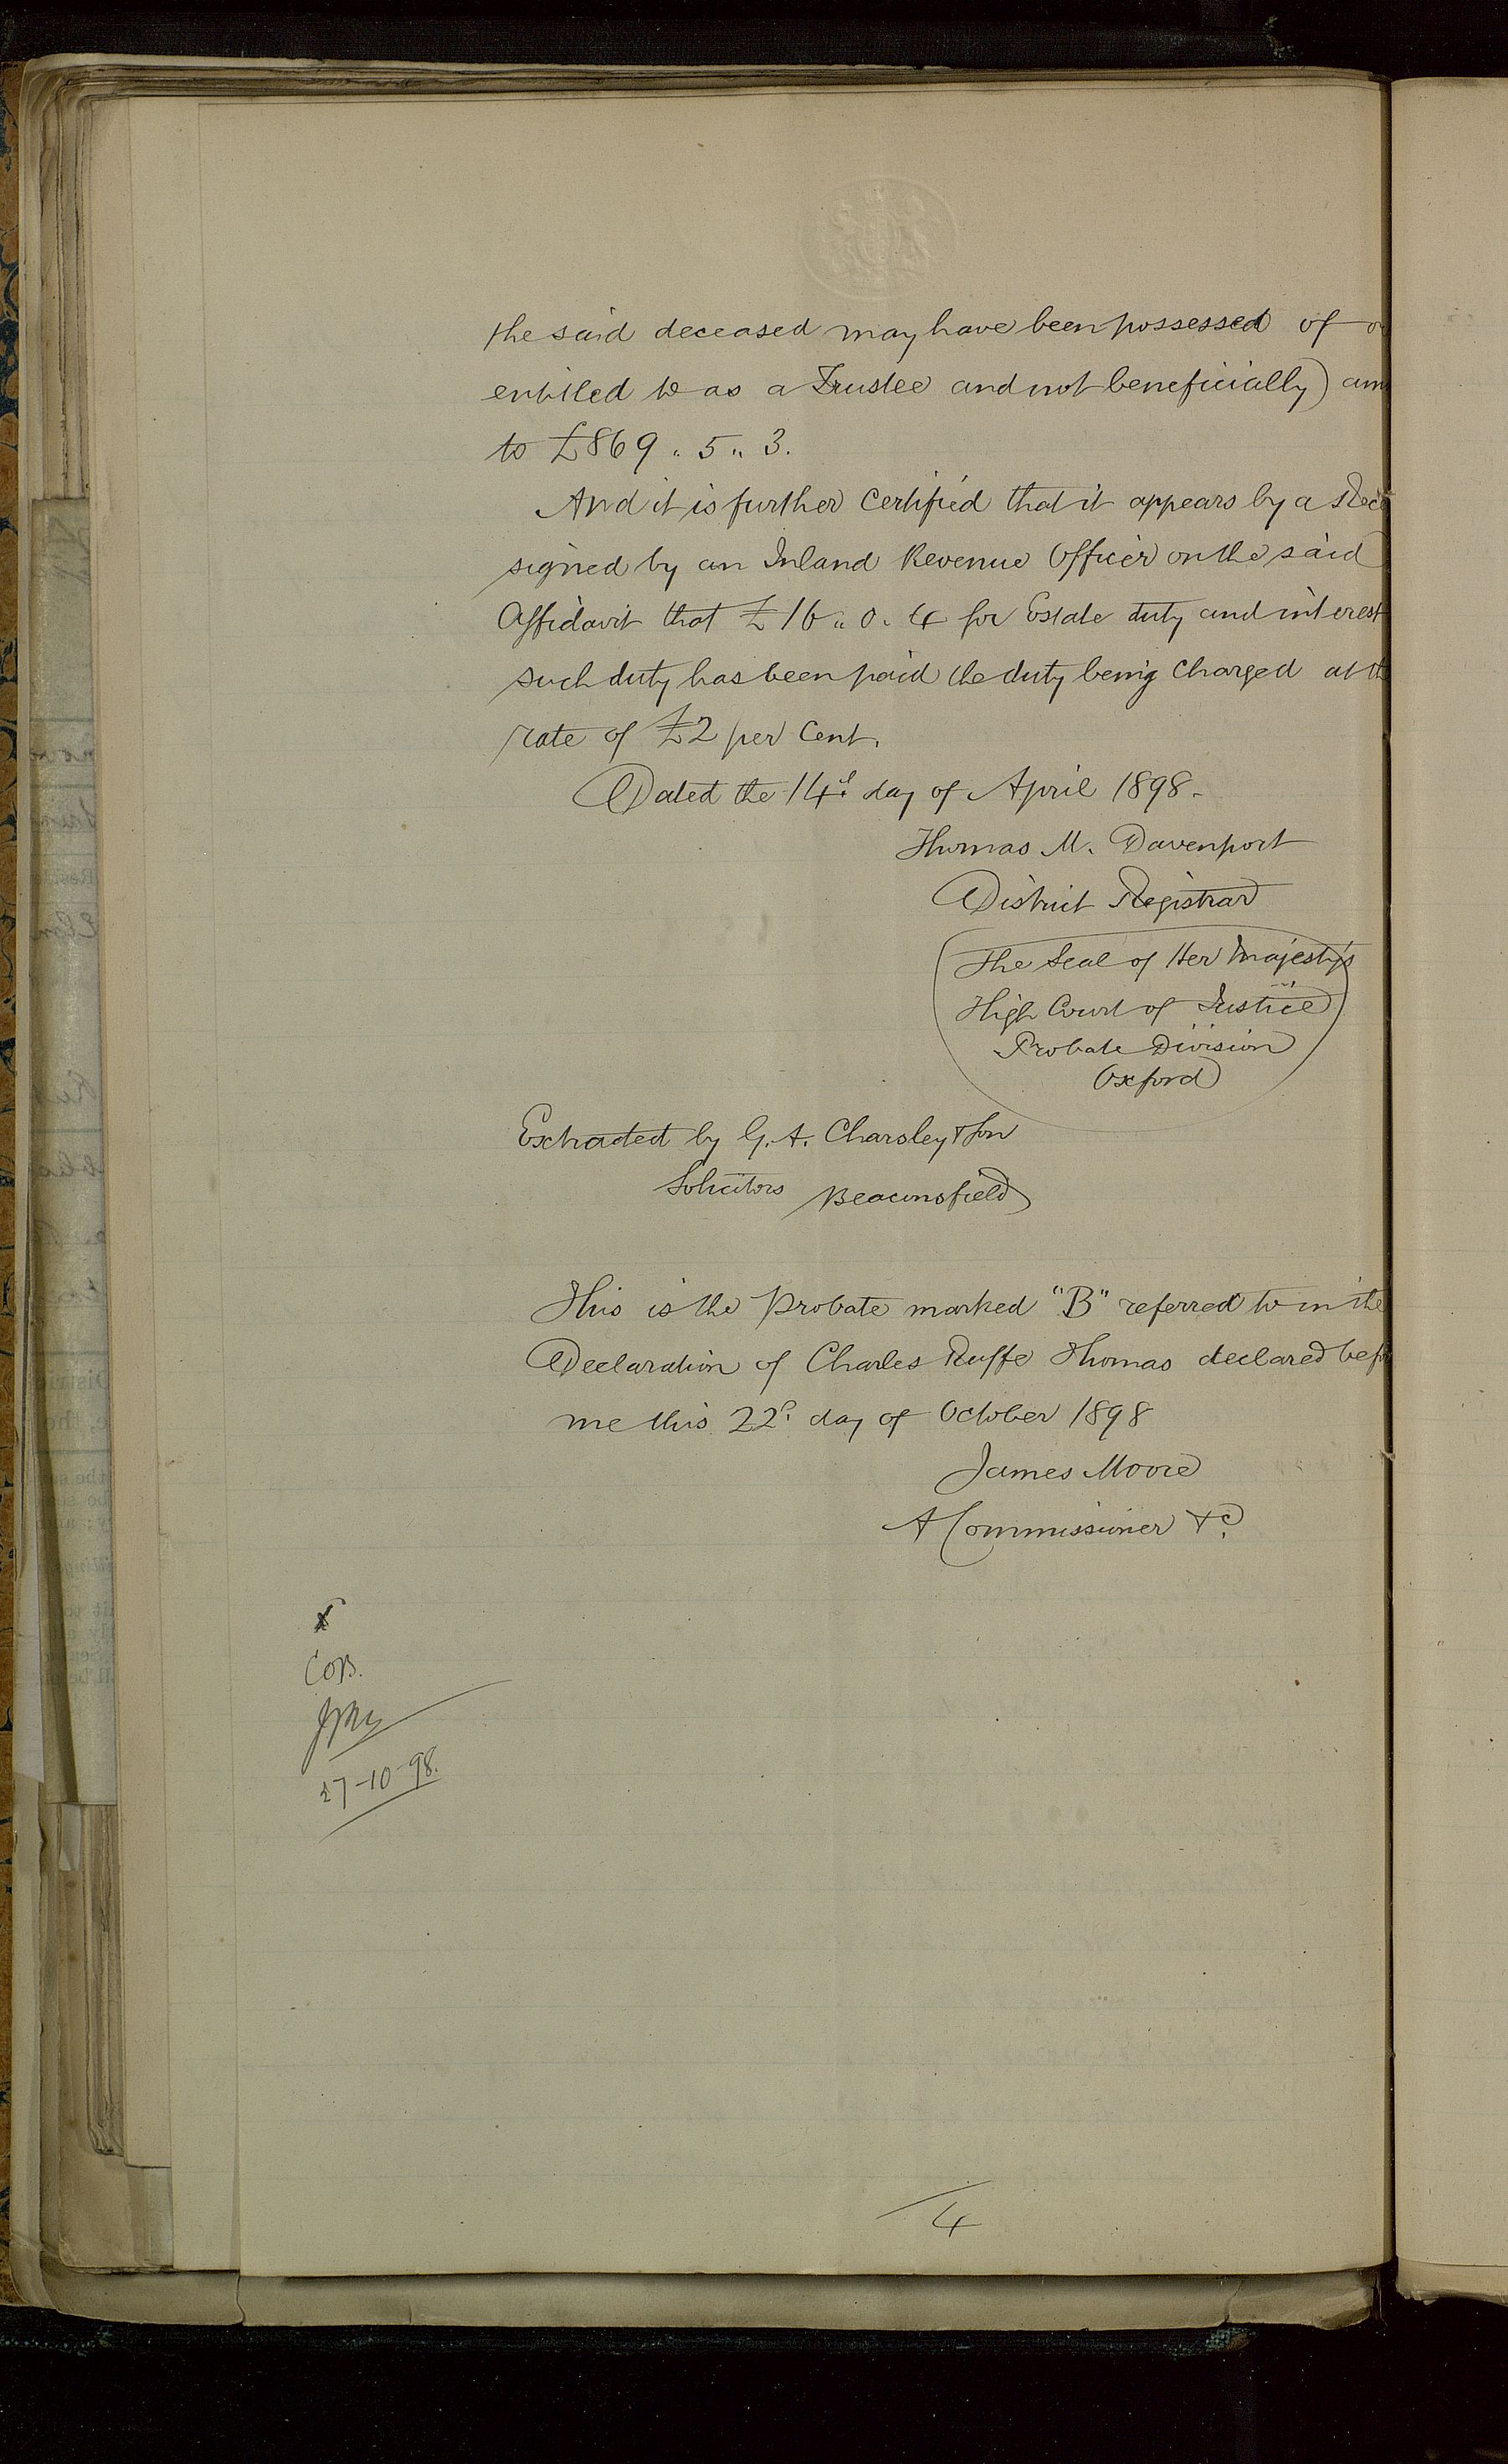 the said deceased may have been possessed of o
entitled to as a Trustee and not beneficially) am
to £869 " 5 " 3.
And it is further Certified that it appears by a Rece
signed by an Inland Revenue Officer on the said
Affidavit that £16 " 0 " 4 for Estate duty and interest
such duty has been paid the duty being Charged at th
rate of £2 per Cent.
Dated the 14th day of April 1898.
Thomas M. Davenport
District Registrar
The Seal of Her Majesty's
High Court of Justice
Probate Division
Oxford
Extracted by G. A. Charsley & Son
Solicitors Beaconsfield
This is the Probate marked "B" referred to in the
Declaration of Charles Ruffe Thomas declared befo
me this 22d. day of October 1898
James Moore
A Commissioner &c.
27-10-98.
4